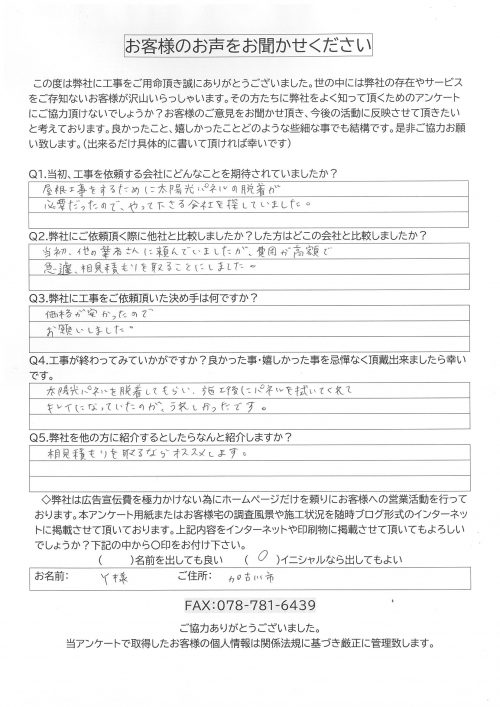 お客様のお声をお聞かせください
この度は弊社に工事をご用命頂き誠にありがとうございました。世の中には弊社の存在やサービス
をご存知ないお客様が沢山いらっしゃいます。その方たちに弊社をよく知って頂くためのアンケート
にご協力頂けないでしょうか?お客様のご意見をお聞かせ頂き、今後の活動に反映させて頂きたい
と考えております。良かったこと、嬉しかったことどのような些細な事でも結構です。是非ご協力お願
い致します。(出来るだけ具体的に書いて頂ければ幸いです)
Q1.当初、工事を依頼する会社にどんなことを期待されていましたか?
屋根工事をするために太陽光パネルの脱着が
必要だったので、やって下さる会社を探していました。
Q2.弊社にご依頼頂く際に他社と比較しましたか?した方はどこの会社と比較しましたか?
当初、他の業者さんに頼んでいましたが、費用が高額で
急遽、相見積もりを取ることにしました。
Q3.弊社に工事をご依頼頂いた決め手は何ですか?
価格が安かったので
お願いしました。
Q4.工事が終わってみていかがですか?良かった事・嬉しかった事を忌憚なく頂戴出来ましたら幸い
です。
太陽光パネルを脱着してもらい、施工後にパネルを拭いてくれて
キレイになっていたのが、うれしかったです。
Q5.弊社を他の方に紹介するとしたらなんと紹介しますか?
相見積もりを取るならオススメします。
◇弊社は広告宣伝費を極力かけない為にホームページだけを頼りにお客様への営業活動を行って
おります。本アンケート用紙またはお客様宅の調査風景や施工状況を随時ブログ形式のインターネッ
トに掲載させて頂いております。上記内容をインターネットや印刷物に掲載させて頂いてもよろしい
でしょうか?下記の中から〇印をお付け下さい。
( )名前を出しても良い (〇)イニシャルなら出してもよい
お名前: Y様 ご住所: 加古川市
FAX:078-781-6439
ご協力ありがとうございました。
当アンケートで取得したお客様の個人情報は関係法規に基づき厳正に管理致します。